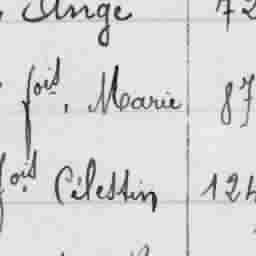 Ange 72
fois, Marie 87
fois Célestin 124